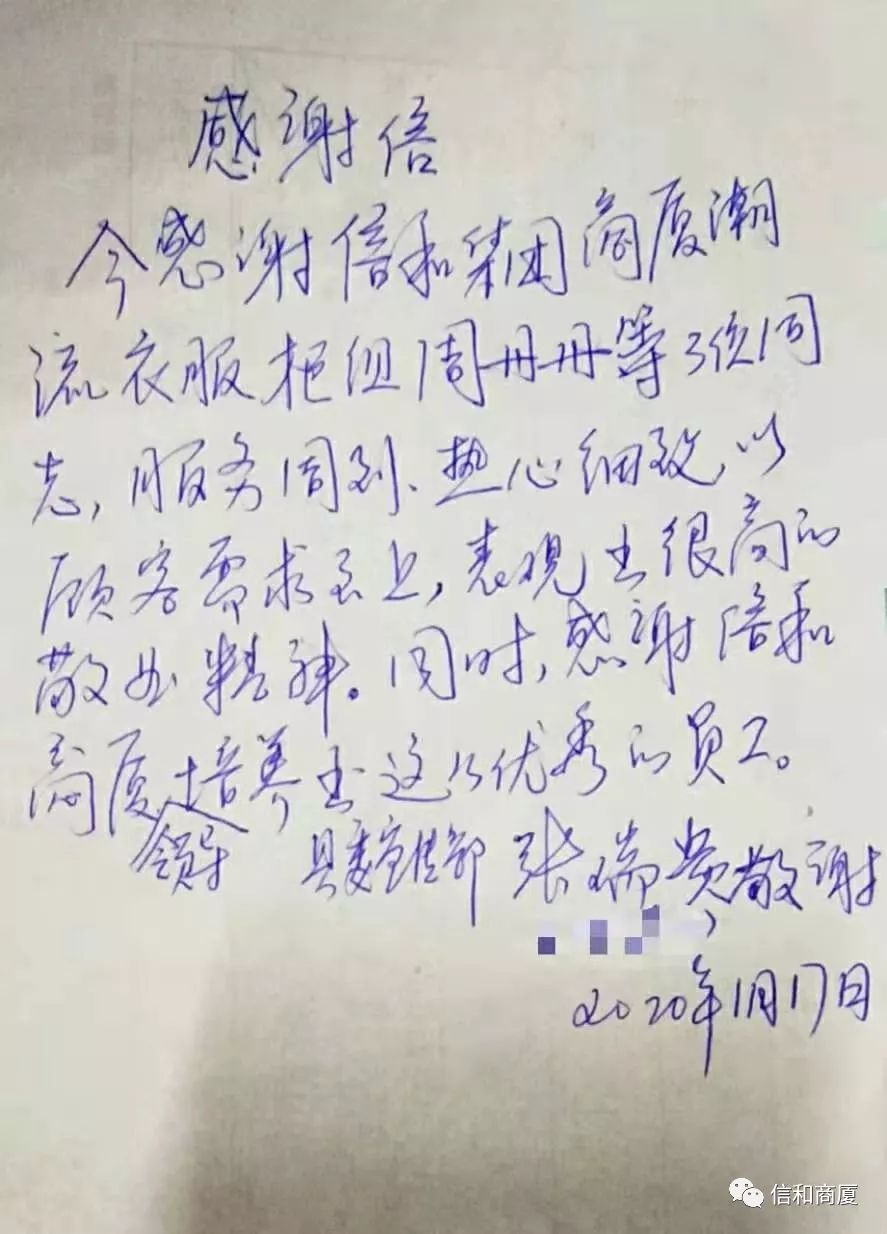 感谢信
今感谢信和集团商厦潮
流衣服柜组周丹丹等3位同
志,服务周到、热心细致,以
顾客需求至上,表现出很高的
敬业精神。同时,感谢信和
商厦领导培养出这么优秀的员工。
县委宣传部 张瑞贵敬谢
2020年1月17日
信和商厦